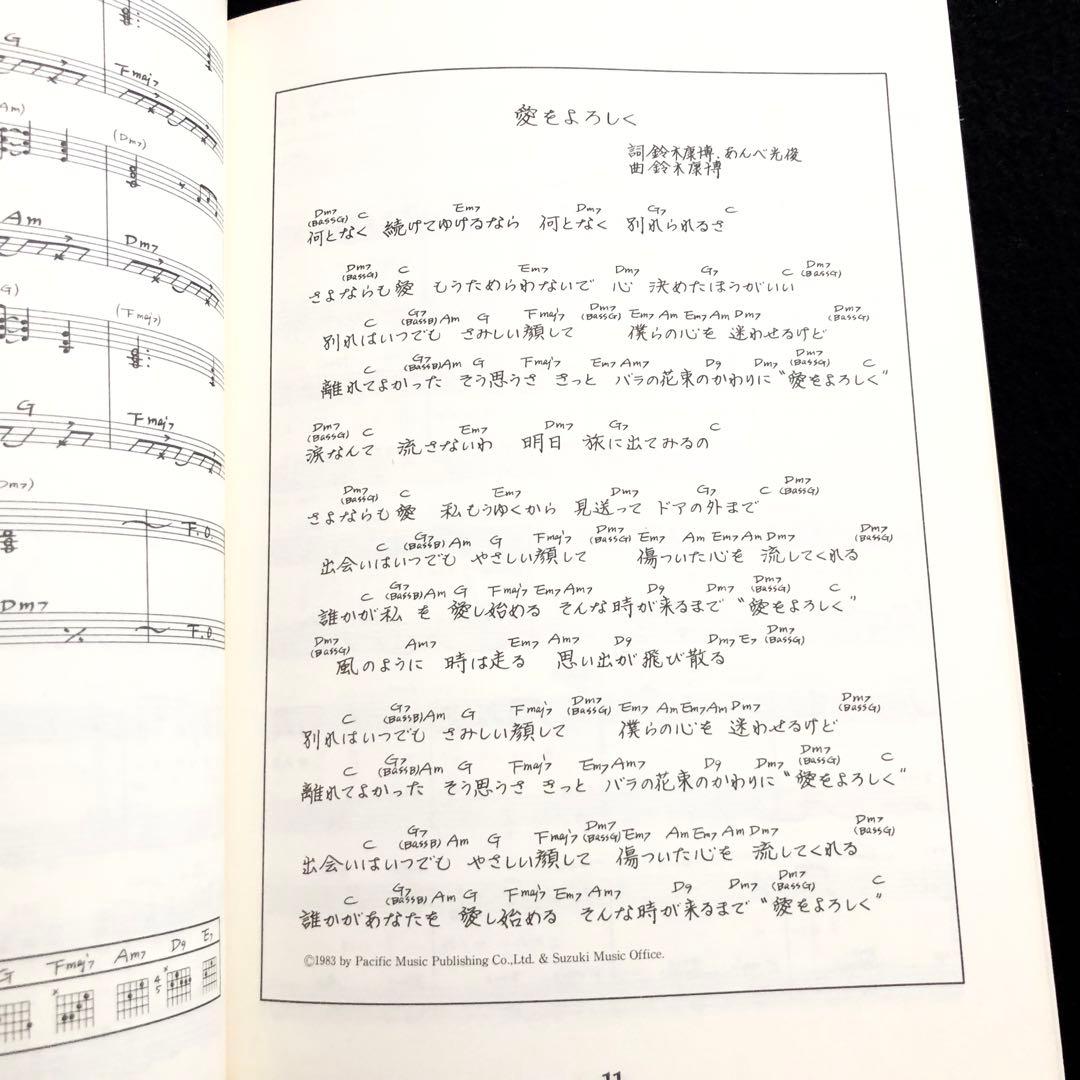 G
Fmaj7
Am)
(Dm7)
Am
Dm7
G)
(Fmaj7)
G
Fmaj7
Dm7)
F.O.
Dm7
F.O.
G Fmaj7 Am7 D9 E7
愛をよろしく
詞 鈴木康博、あんべ光俊
曲 鈴木康博
Dm7 (BassG) C Em7 Dm7 G7 C
何となく 続けてゆけるなら 何となく 別れられるさ
Dm7 (BassG) C Em7 Dm7 G7 C Dm7 (BassG)
さよならも愛 もうためらわないで 心 決めたほうがいい
C G7 (BassB) Am G Fmaj7 Dm7 (BassG) Em7 Am Em7 Am Dm7 Dm7 (BassG)
別れはいつでも さみしい顔して 僕らの心を 迷わせるけど
C G7 (BassB) Am G Fmaj7 Em7 Am7 D9 Dm7 Dm7 (BassG) C
離れてよかった そう思うさ きっと バラの花束のかわりに “愛をよろしく”
Dm7 (BassG) C Em7 Dm7 G7 C
涙なんて 流さないわ 明日 旅に出てみるの
Dm7 (BassG) C Em7 Dm7 G7 C Dm7 (BassG)
さよならも愛 私もうゆくから 見送って ドアの外まで
C G7 (BassB) Am G Fmaj7 Dm7 (BassG) Em7 Am Em7 Am Dm7 Dm7 (BassG)
出会いはいつでも やさしい顔して 傷ついた心を 流してくれる
C G7 (BassB) Am G Fmaj7 Em7 Am7 D9 Dm7 Dm7 (BassG) C
誰かが私を 愛し始める そんな時が来るまで “愛をよろしく”
Dm7 (BassG) Am7 Em7 Am7 D9 Dm7 E7 Dm7 (BassG)
風のように 時は走る 思い出が飛び散る
C G7 (BassB) Am G Fmaj7 Dm7 (BassG) Em7 Am Em7 Am Dm7 Dm7 (BassG)
別れはいつでも さみしい顔して 僕らの心を 迷わせるけど
C G7 (BassB) Am G Fmaj7 Em7 Am7 D9 Dm7 Dm7 (BassG) C
離れてよかった そう思うさ きっと バラの花束のかわりに “愛をよろしく”
C G7 (BassB) Am G Fmaj7 Dm7 (BassG) Em7 Am Em7 Am Dm7 Dm7 (BassG)
出会いはいつでも やさしい顔して 傷ついた心を 流してくれる
C G7 (BassB) Am G Fmaj7 Em7 Am7 D9 Dm7 Dm7 (BassG) C
誰かがあなたを 愛し始める そんな時が来るまで “愛をよろしく”
©1983 by Pacific Music Publishing Co.,Ltd. & Suzuki Music Office.
11